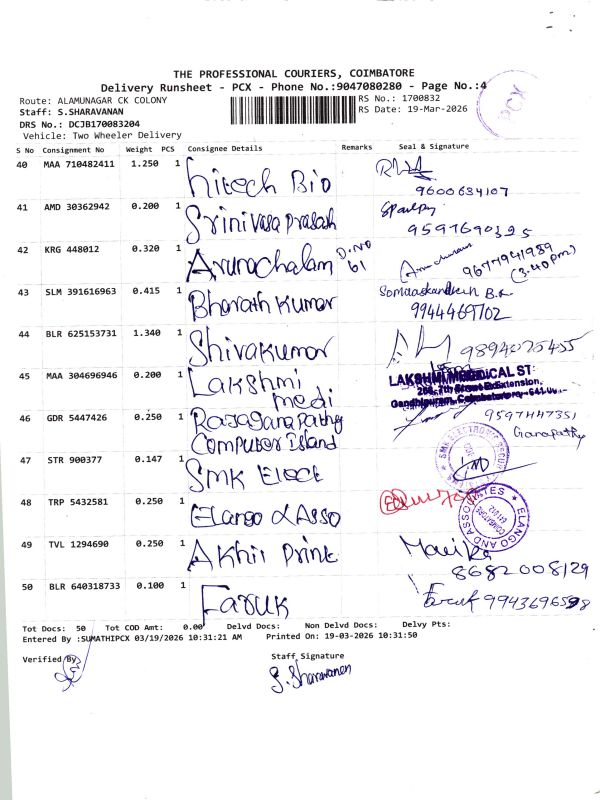 THE PROFESSIONAL COURIERS, COIMBATORE
Delivery Runsheet - PCX - Phone No.:9047080280 - Page No.:4
Route: ALAMUNAGAR CK COLONY
RS No.: 1700832
Staff: S.SHARAVANAN
RS Date: 19-Mar-2026
DRS No.: DCJB170083204
Vehicle: Two Wheeler Delivery
PCX
S No Consignment No Weight PCS Consignee Details Remarks Seal & Signature
40 MAA 710482411 1.250 1 hitech Bio
9600634107
41 AMD 30362942 0.200 1 Srinivasa prasash
9597690395
42 KRG 448012 0.320 1 Arunachalam D.NO 61
9677941989
(3.40pm)
43 SLM 391616963 0.415 1 Bharath kumar
9944469702
44 BLR 625153731 1.340 1 Shivakumar
9894025455
45 MAA 304696946 0.200 1 Lakshmi medi
LAKSHMI MEDICAL ST
46 GDR 5447426 0.250 1 Rajaganapathy Computer Island
9597447351
Ganapathy
47 STR 900377 0.147 1 SMK Elect
48 TRP 5432581 0.250 1 Elango & Asso
ELANGO AND ASSOCIATES
49 TVL 1294690 0.250 1 Akhil Print
8682008129
50 BLR 640318733 0.100 1 Faruk
Faruk 9943696598
Tot Docs: 50 Tot COD Amt: 0.00 Delvd Docs: Non Delvd Docs: Delvy Pts:
Entered By :SUMATHIPCX 03/19/2026 10:31:21 AM Printed On: 19-03-2026 10:31:50
Verified By
Staff Signature
S. Sharavanan